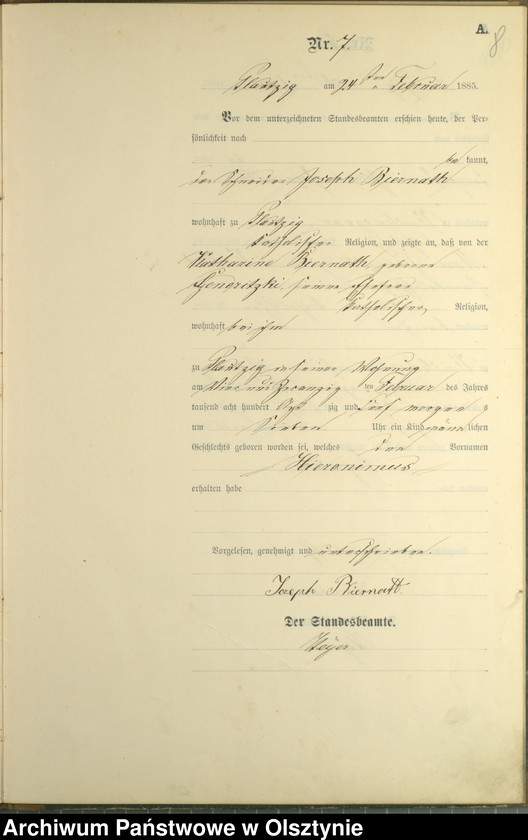 A.
8
Nr. 7.
Plautzig am 24ten Februar 1885.
Vor dem unterzeichneten Standesbeamten erschien heute, der Per-
sönlichkeit nach
be kannt,
der Schneider Joseph Biernath
wohnhaft zu Plautzig
katholischer Religion, und zeigte an, daß von der
Katharine Biernath, geborene
seiner Ehefrau
katholischer Religion,
wohnhaft bei ihm
zu Plautzig in seiner Wohnung
am Vier und Zwanzig ten Februar des Jahres
tausend acht hundert Acht zig und Fünf morgens
um Sieben Uhr ein Kind männ lichen
Geschlechts geboren worden sei, welches den Vornamen
Hieronimus
erhalten habe
Vorgelesen, genehmigt und unterschrieben.
Joseph Biernath
Der Standesbeamte.
Archiwum Państwowe w Olsztynie